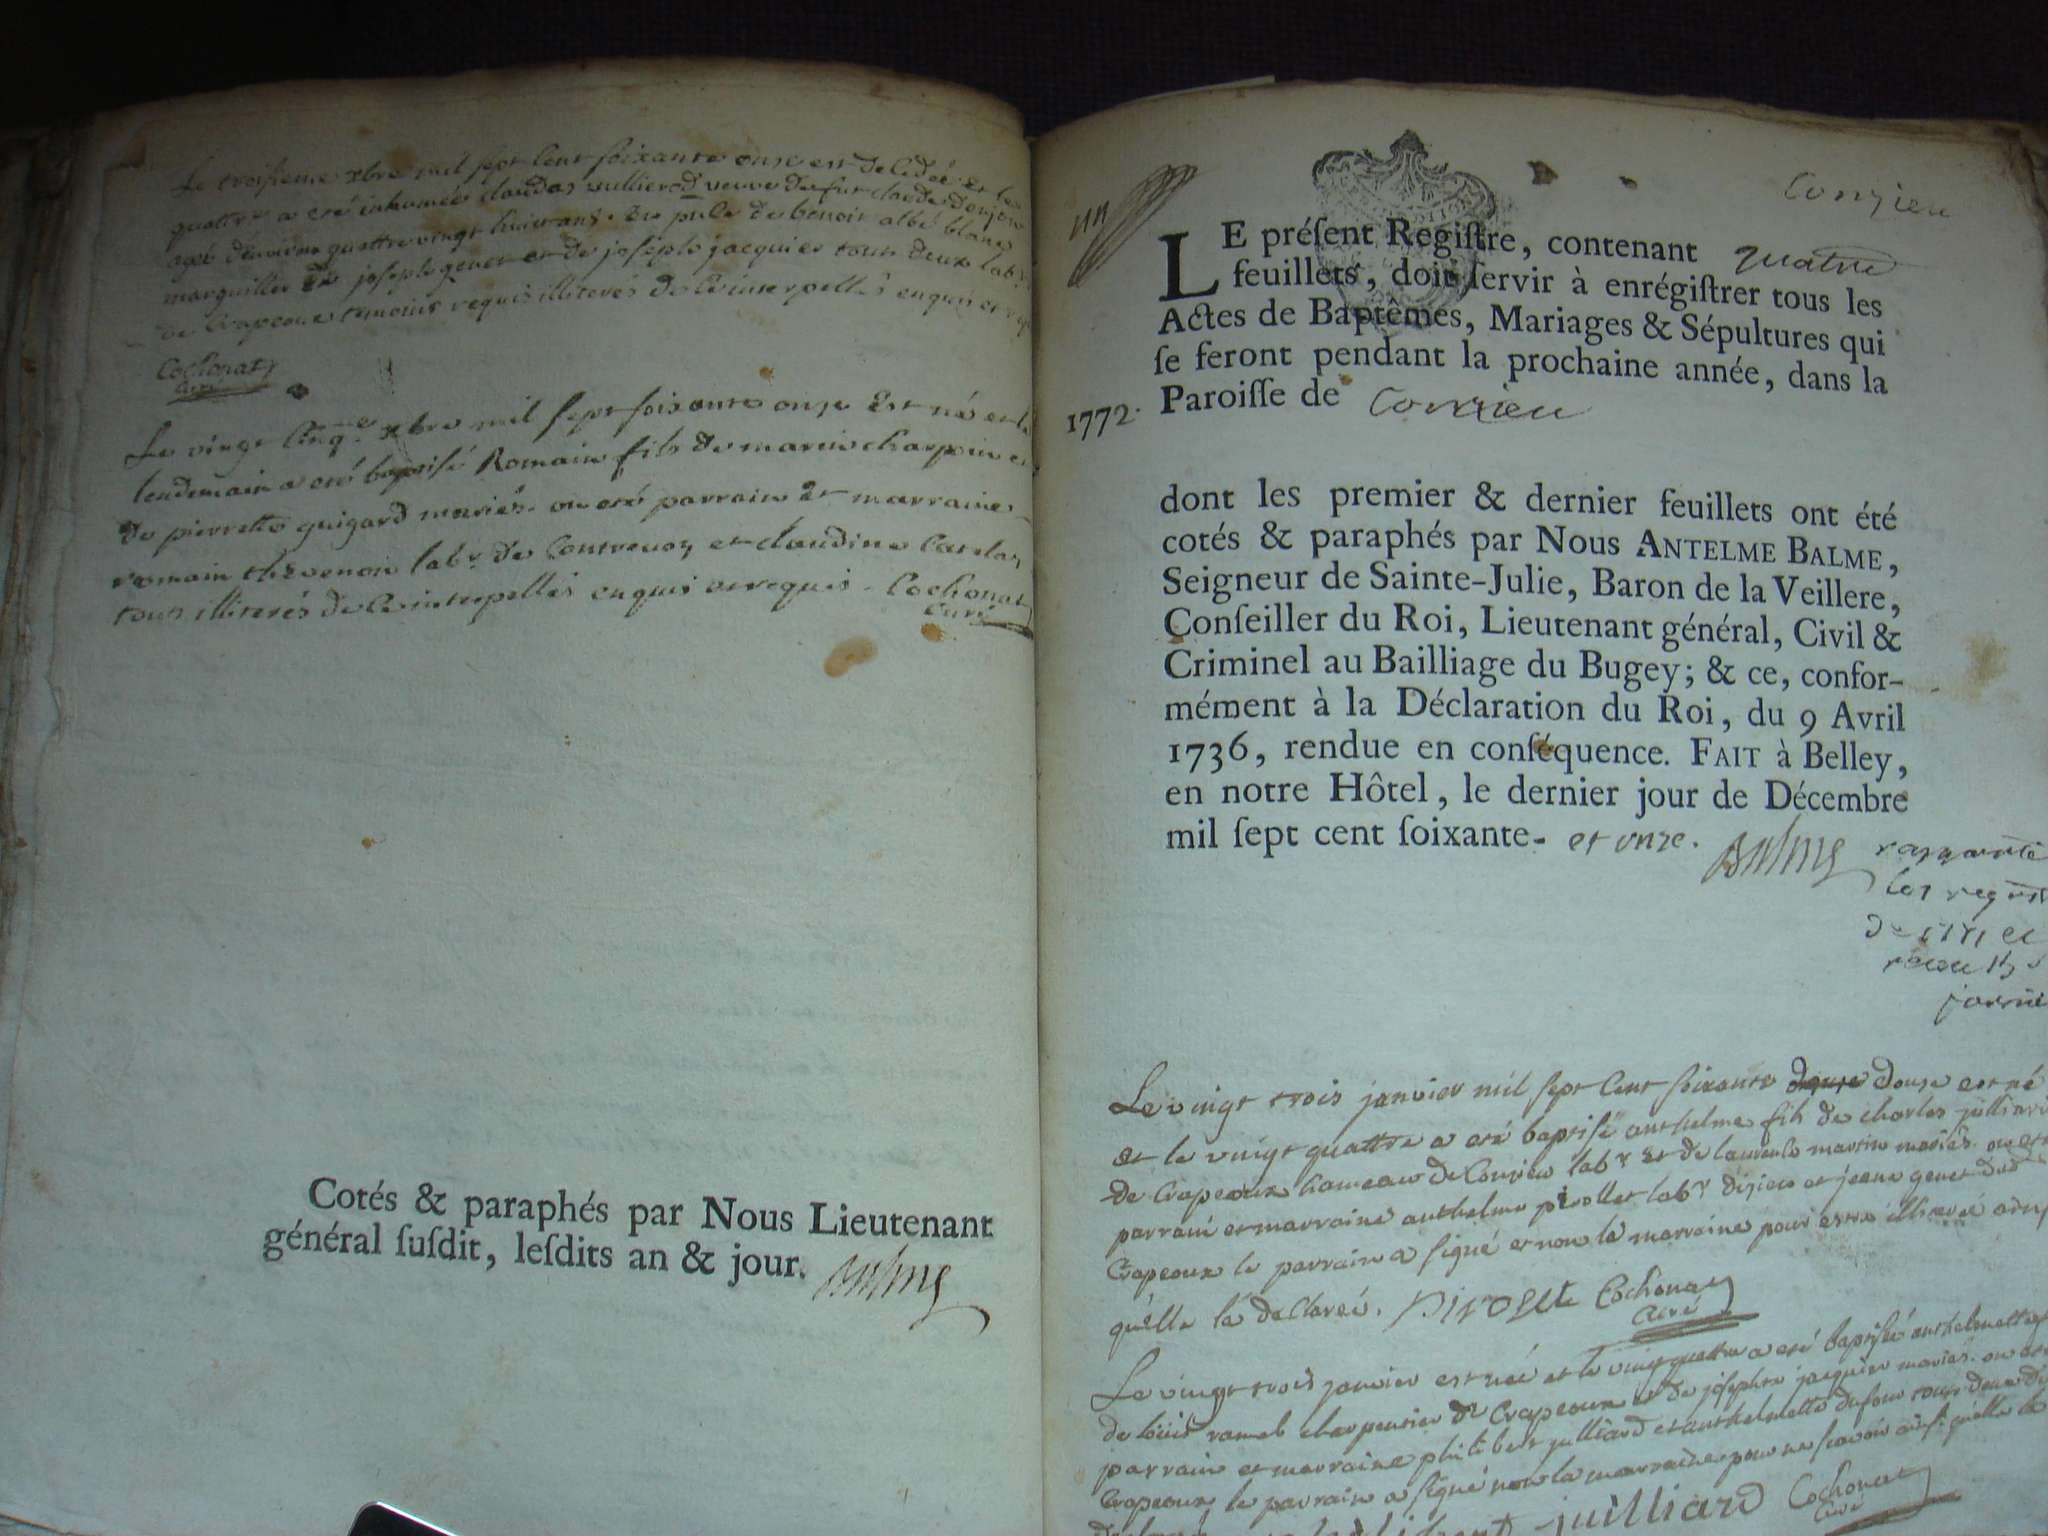 Le troisieme xbre mil sept cent soixante onze est decedée et le
quattre a eté inhumée claudas vullierod veuve de fut claude donjon
agée denviron quattre vingt huit ans. en pnce de benoit albé blanc
marguillier de joseph genet et de joseph jacquier tous deux labrs
de Crapeoux temoins requis illiterés de ce interpellés enquis et
Cochonat
Curé
Le vingt cinqe xbre mil sept soixante onze Est né et le
lendemain a eté baptisé Romain fils de marin charpin et
de pierrette guigard mariés. on eté parrain Et marraine
romain thevenon labr. de Contrevoz et claudine Catelaz
tous illiterés de ce interpellés enquis et requis. Cochonat
Curé
Cotés & paraphés par Nous Lieutenant
général ſuſdit, leſdits an & jour. Balme
Conzieu
LE préſent Regiſtre, contenant quatre
feuillets, doit ſervir à enrégiſtrer tous les
Actes de Baptêmes, Mariages & Sépultures qui
ſe feront pendant la prochaine année, dans la
1772. Paroiſſe de Conzieu
dont les premier & dernier feuillets ont été
cotés & paraphés par Nous ANTELME BALME,
Seigneur de Sainte-Julie, Baron de la Veillere,
Conſeiller du Roi, Lieutenant général, Civil &
Criminel au Bailliage du Bugey; & ce, confor-
mément à la Déclaration du Roi, du 9 Avril
1736, rendue en conſéquence. FAIT à Belley,
en notre Hôtel, le dernier jour de Décembre
mil ſept cent ſoixante- et unze. Balme
Le vingt trois janvier mil sept cent soixante douze est né
et le vingt quattre a eté baptisé anthelme fils de charles julliard
de Crapeoux hameau de Conzieu labr et de laurence martin mariés. on eté
parrain et marraine anthelme pirollet labr dizieu et jeane genet dud
Crapeoux le parrain a signé et non la marraine pour estre illiterée
qu'elle la declareé. Pirollet Cochonat
Curé
Le vingt trois janvier est neé et le vingt quattre a eté baptisée anthelmette
de loüis ramel charpentier de Crapeoux et de josephte jacquier mariés. on eté
parrain et marraine philibert julliard et anthelmette dufour tous deux de
Crapeoux le parrain a signé non la marraine pour ne scavoir ainsi quelle la
philibert juilliard Cochonat
Curé